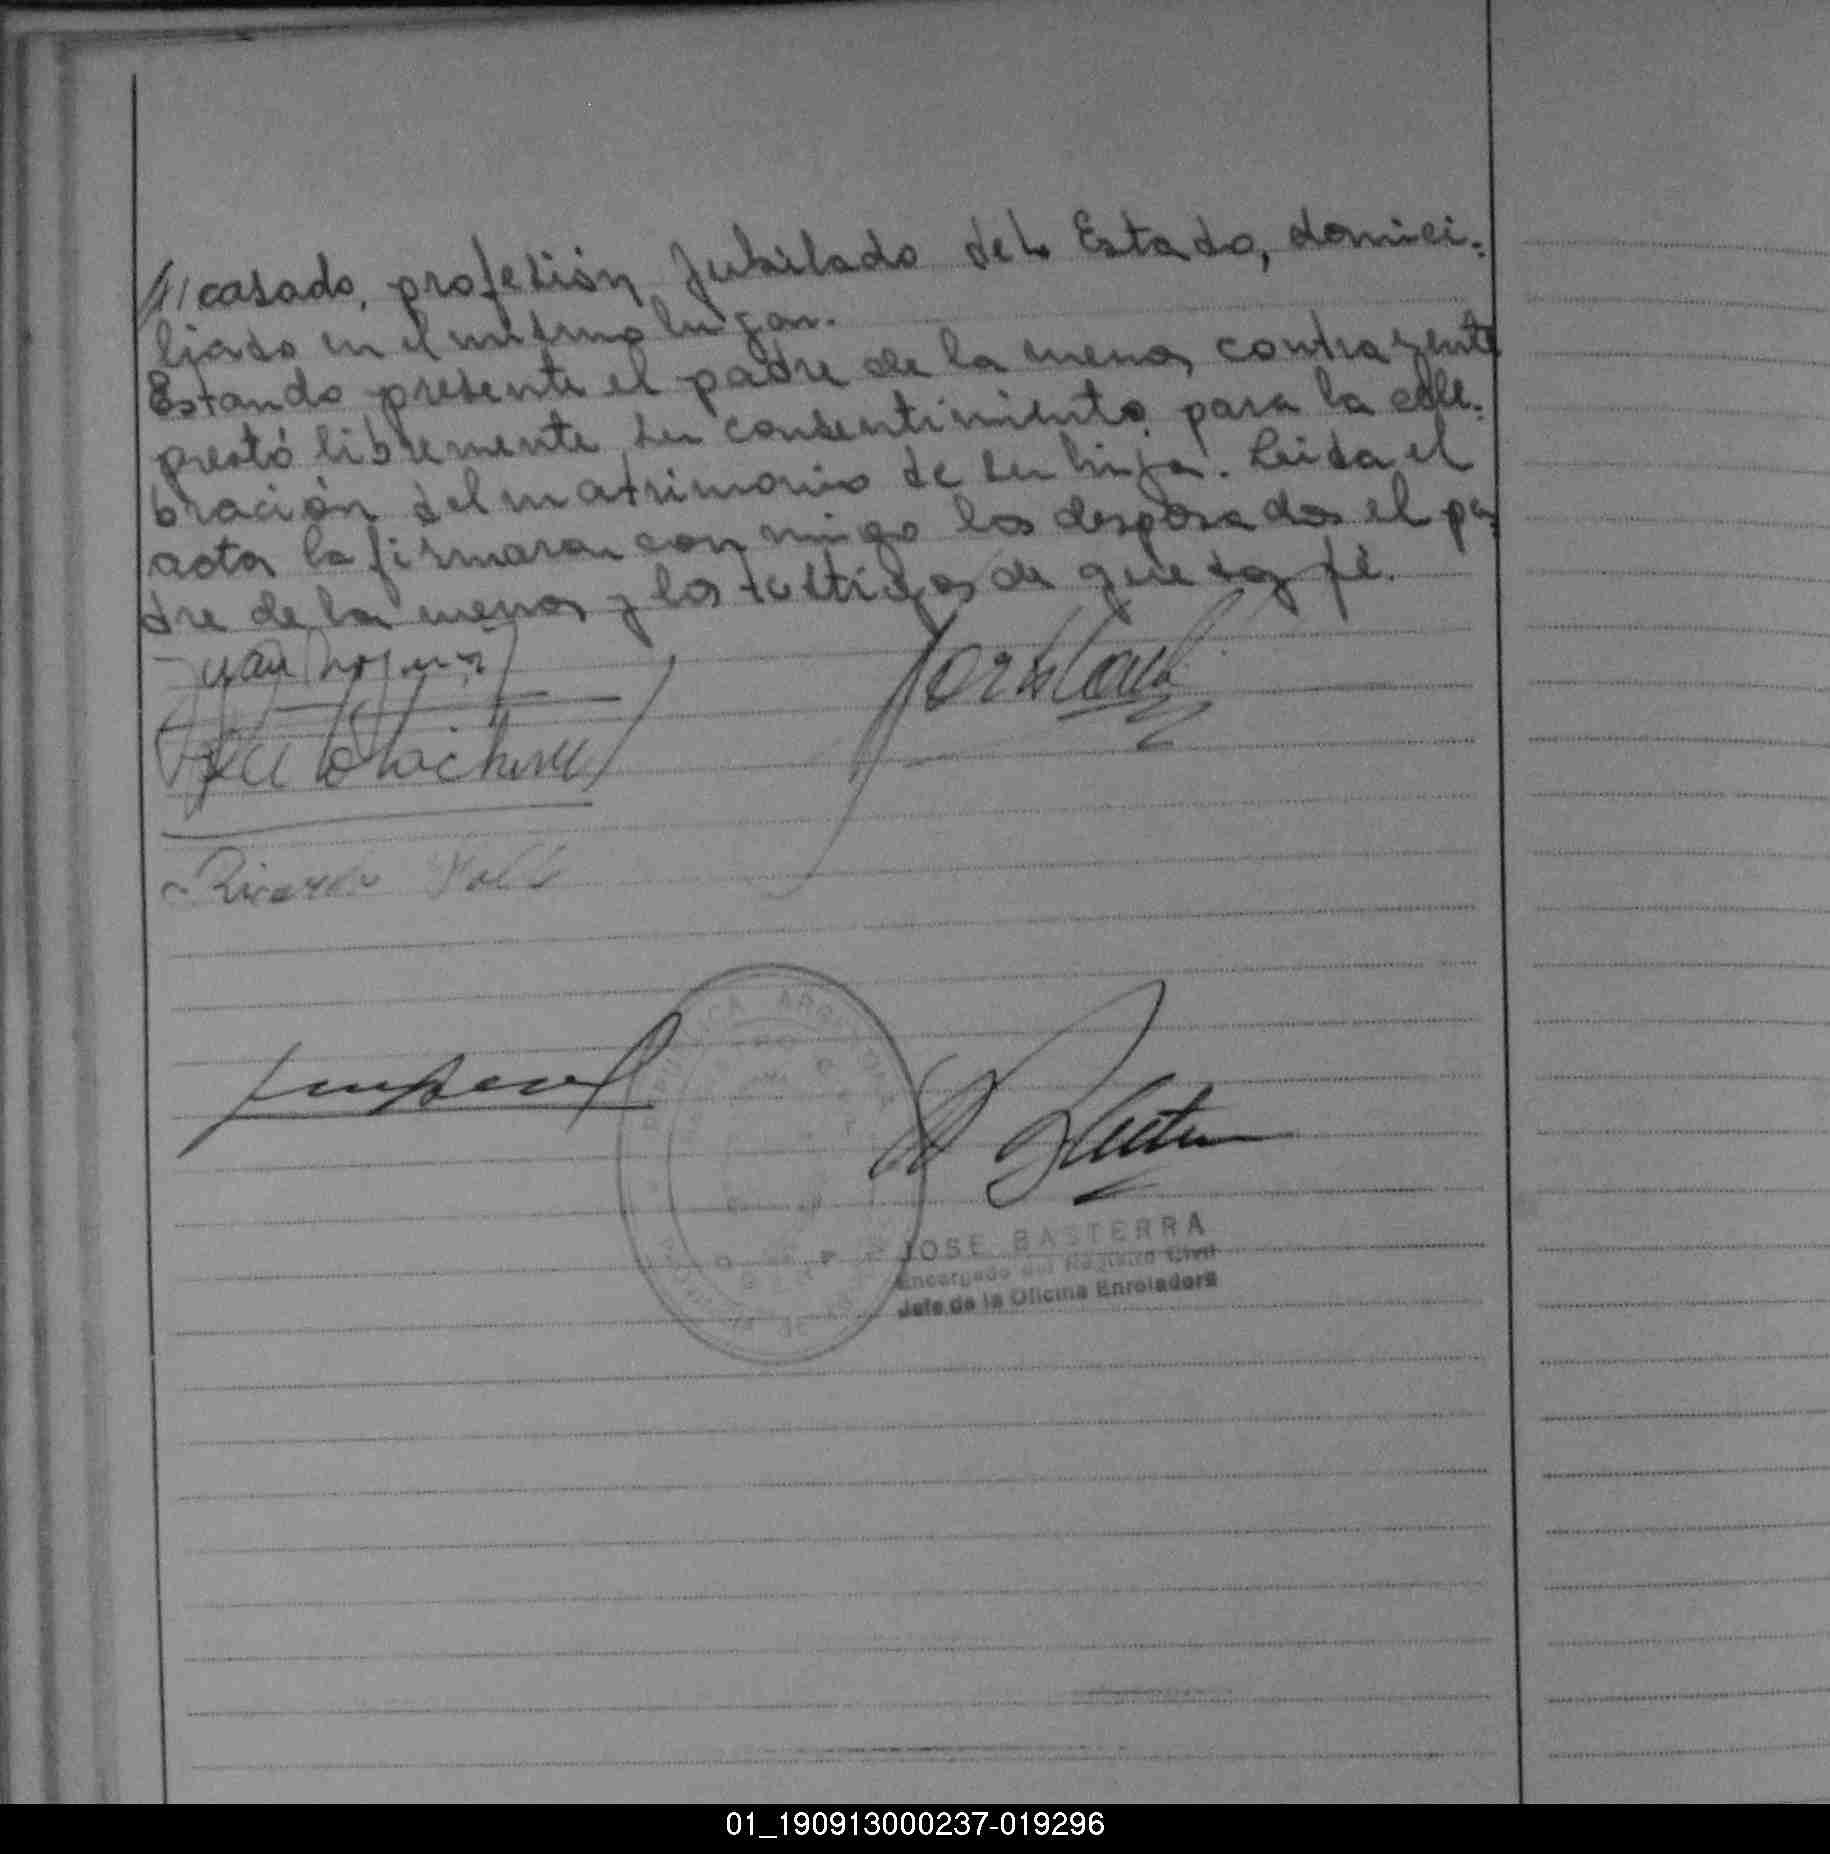 /// casado, profesión Jubilado del Estado, domici-
liado en el mismo lugar.
Estando presente el padre de la menor contrayente
prestó libremente su consentimiento para la cele-
bración del matrimonio de su hija. Leída el
acta la firmaran con migo los desposados el pa-
dre de la menor y los testigos de que doy fé.
Juan
Ricardo
REPUBLICA ARGENTINA
JOSE BASTERRA
Encargado del Registro Civil
Jefe de la Oficina Enroladora
01_190913000237-019296